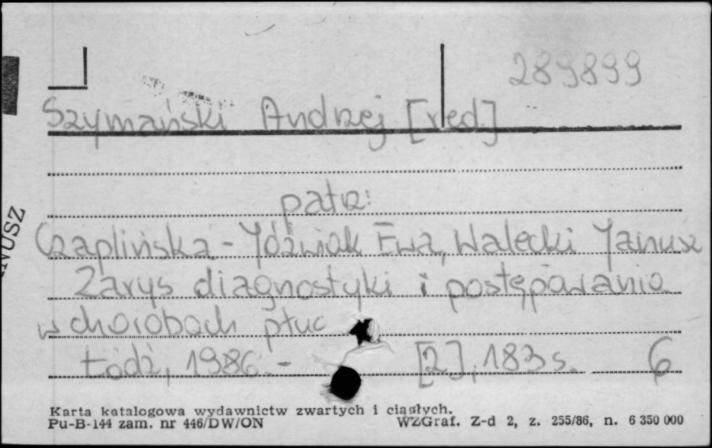 289899
Szymański Andrzej [red.]
patrz:
Czaplińska-Jóźwiak Ewa, Walecki Janusz
Zarys diagnostyki i postępowania
w chorobach płuc
Łódź, 1986. - [2], 183 s. 6
Karta katalogowa wydawnictw zwartych i ciągłych.
Pu-B-144 zam. nr 446/DW/ON WZGraf. Z-d 2, z. 255/86, n. 6 350 000